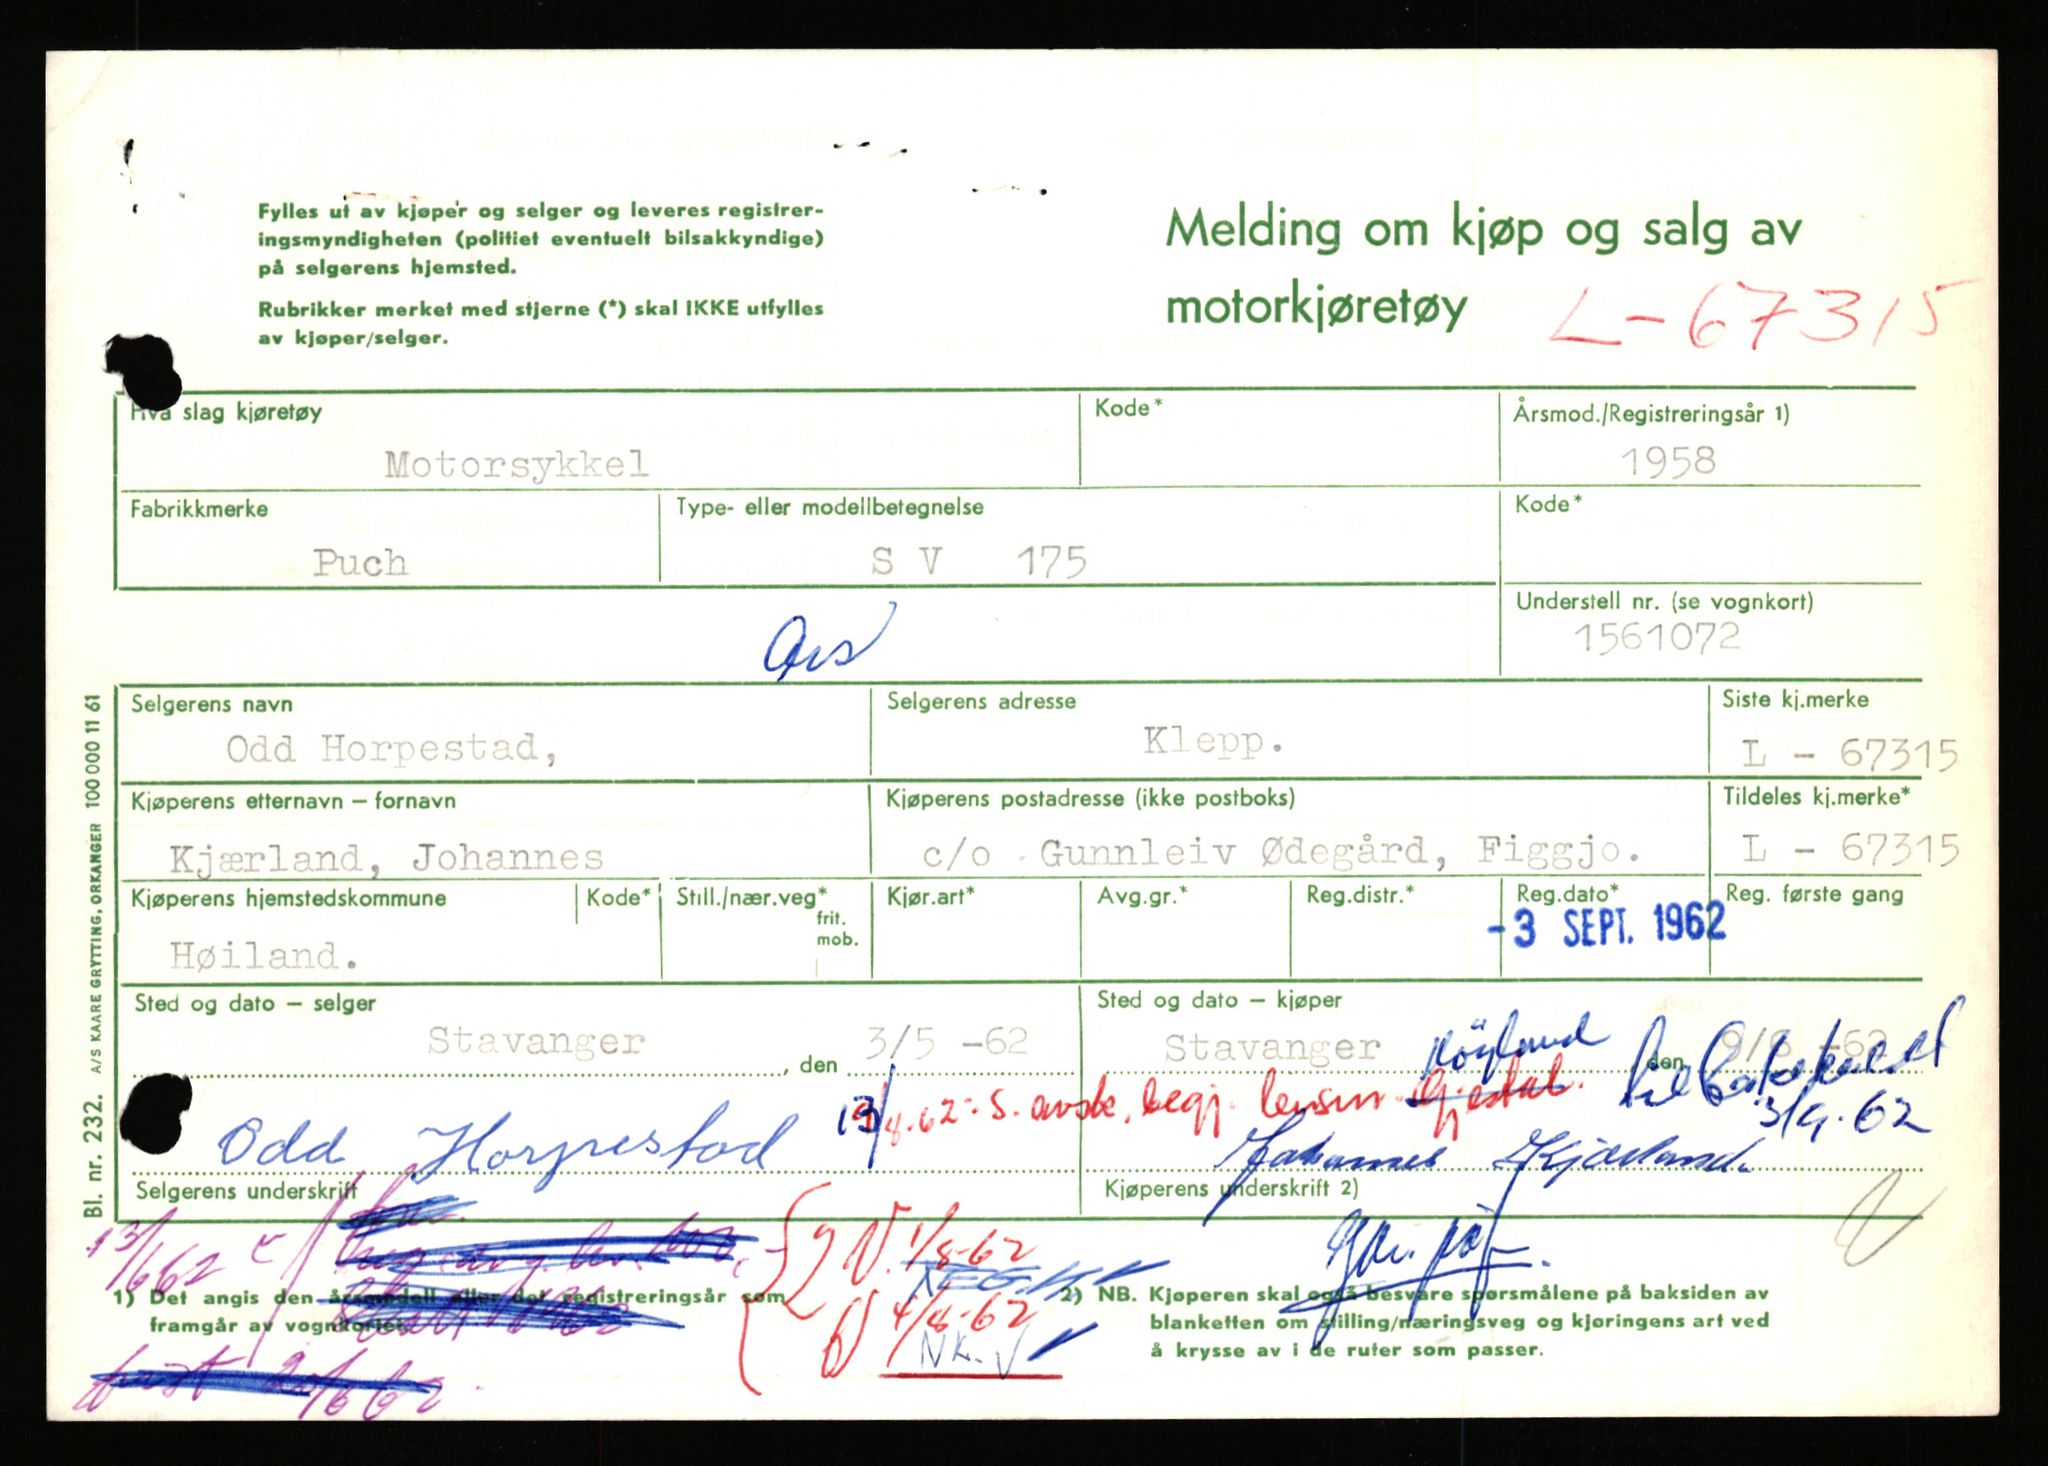 Fylles ut av kjøper og selger og leveres registrer-
ingsmyndigheten (politiet eventuelt bilsakkyndige)
på selgerens hjemsted.
Rubrikker merket med stjerne (*) skal IKKE utfylles
av kjøper/selger.
Melding om kjøp og salg av
motorkjøretøy L-67315
Hva slag kjøretøy Kode* Årsmod./Registreringsår 1)
Motorsykkel 1958
Fabrikkmerke Type- eller modellbetegnelse Kode*
Puch S V 175
Understell nr. (se vognkort)
1561072
Selgerens navn Selgerens adresse Siste kj.merke
Odd Horpestad, Klepp. L - 67315
Kjøperens etternavn – fornavn Kjøperens postadresse (ikke postboks) Tildeles kj.merke*
Kjærland, Johannes c/o Gunnleiv Ødegård, Figgjo. L - 67315
Kjøperens hjemstedskommune Kode* Still./nær.veg* frit. mob. Kjør.art* Avg.gr.* Reg.distr.* Reg.dato* Reg. første gang
Høiland. -3 SEPT. 1962
Sted og dato – selger Sted og dato – kjøper
Stavanger , den 3/5 -62 Stavanger den
3/9-62
Odd Horpestad Johannes Kjærland
Selgerens underskrift Kjøperens underskrift 2)
13/6 62
1/8-62
4/8-62
1) Det angis den årsmodell eller det registreringsår som
framgår av vognkortet.
2) NB. Kjøperen skal også besvare spørsmålene på baksiden av
blanketten om stilling/næringsveg og kjøringens art ved
å krysse av i de ruter som passer.
Bl. nr. 232. A/S KAARE GRYTTING, ORKANGER 100 000 11 61